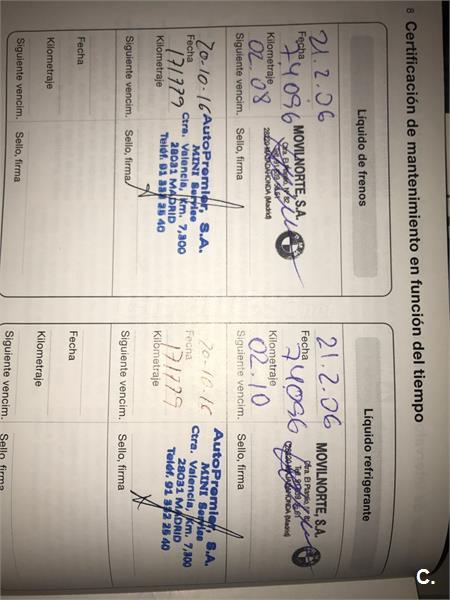 8 Certificación de mantenimiento en función del tiempo
Líquido de frenos
21.2.06
Fecha
74096
Kilometraje
02.08
Siguiente vencim.
MOVILNORTE, S.A.
Sello, firma
20-10-16
Fecha
171779
Kilometraje
Siguiente vencim.
AutoPremier, S.A.
MINI Service
Ctra. Valencia, Km. 7,300
28031 MADRID
Teléf. 91 332 25 40
Sello, firma
Fecha
Kilometraje
Siguiente vencim.
Sello, firma
Líquido refrigerante
21.2.06
Fecha
74096
Kilometraje
02.10
Siguiente vencim.
MOVILNORTE, S.A.
Sello, firma
20-10-16
Fecha
171779
Kilometraje
Siguiente vencim.
AutoPremier, S.A.
MINI Service
Ctra. Valencia, Km. 7,300
28031 MADRID
Teléf. 91 332 25 40
Sello, firma
Fecha
Kilometraje
Siguiente vencim.
Sello, firma
C.